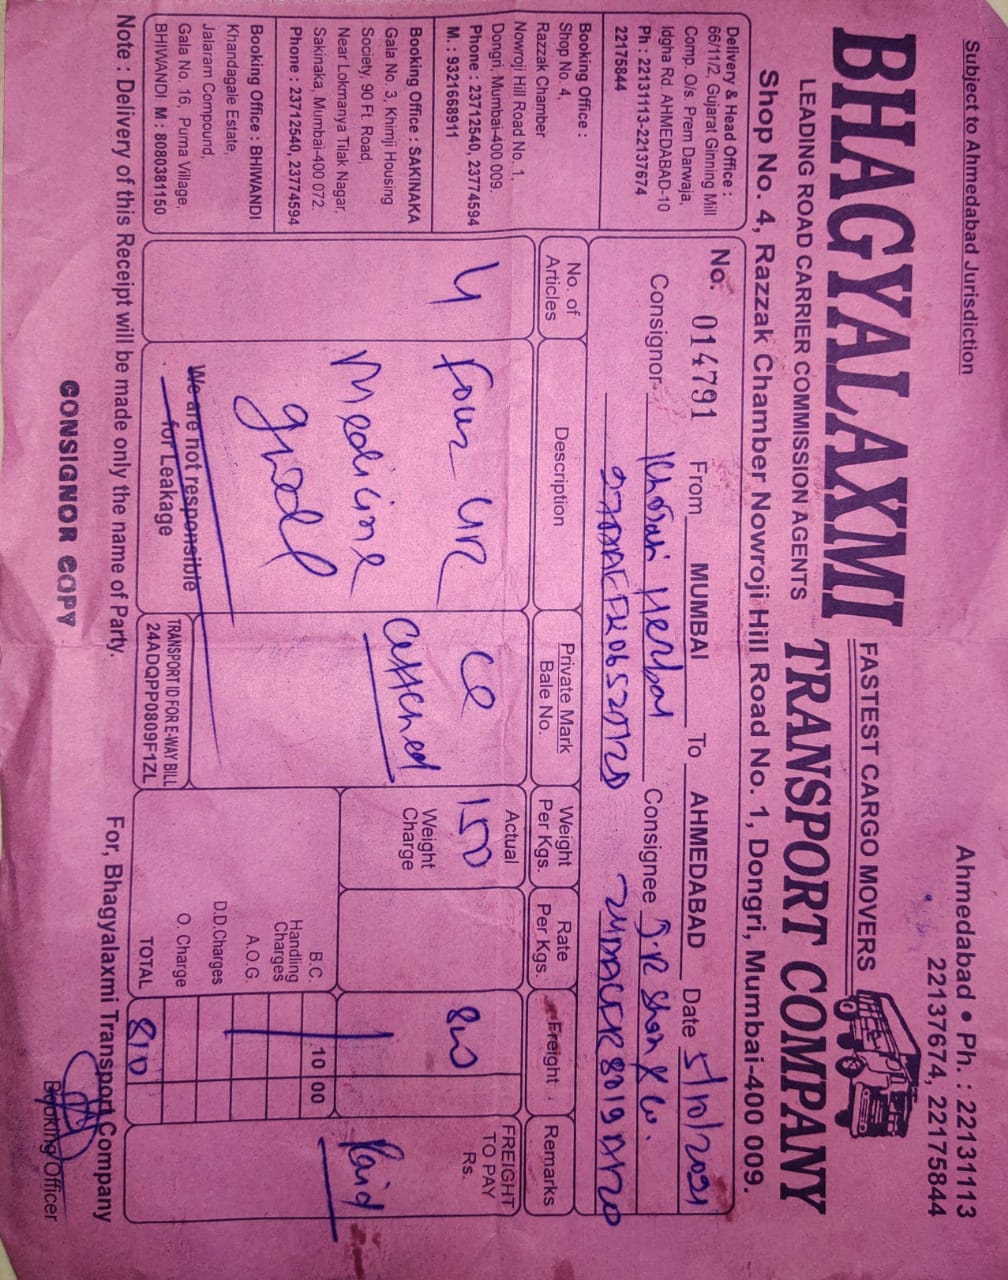 Subject to Ahmedabad Jurisdiction
Ahmedabad • Ph. : 22131113
22137674, 22175844
BHAGYALAXMI
FASTEST CARGO MOVERS
LEADING ROAD CARRIER COMMISSION AGENTS
TRANSPORT COMPANY
Shop No. 4, Razzak Chamber Nowroji Hill Road No. 1, Dongri, Mumbai-400 009.
Delivery & Head Office :
66/11/2, Gujarat Ginning Mill
Comp. O/s. Prem Darwaja,
Idgha Rd. AHMEDABAD-10
Ph : 22131113-22137674
22175844
Booking Office :
Shop No. 4,
Razzak Chamber
Nowroji Hill Road No. 1,
Dongri, Mumbai-400 009.
Phone : 23712540, 23774594
M. : 9321668911
Booking Office : SAKINAKA
Gala No. 3, Khimji Housing
Society, 90 Ft. Road,
Near Lokmanya Tilak Nagar,
Sakinaka, Mumbai-400 072.
Phone : 23712540, 23774594
Booking Office : BHIWANDI
Khandagale Estate,
Jalaram Compound,
Gala No. 16, Purna Village,
BHIVANDI. M : 8080381150
No. 014791 From MUMBAI To AHMEDABAD Date 5/10/2021
Consignor Khorati Herbal Consignee J.R Shah & Co.
No. of Articles
Description
Private Mark Bale No.
Weight Per Kgs.
Rate Per Kgs.
Freight
Remarks
4
Four
Medicine
Actual
150
Weight Charge
800
FREIGHT TO PAY Rs.
Paid
We are not responsible
for Leakage
TRANSPORT ID FOR E-WAY BILL
24ADQPP0809F1ZL
B.C. 10 00
Handling Charges
A.O.G.
D.D.Charges
O. Charge
TOTAL 810
Note : Delivery of this Receipt will be made only the name of Party.
For, Bhagyalaxmi Transport Company
CONSIGNOR COPY
Booking Officer